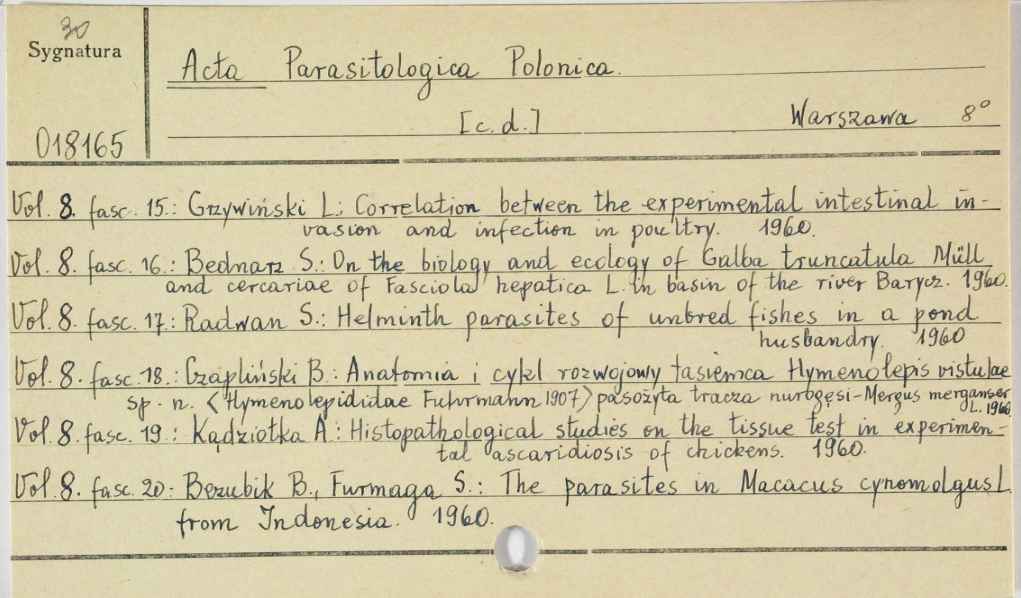 30
Sygnatura
Acta Parasitologica Polonica.
[c.d.] Warszawa 8°
018165
Vol. 8. fasc. 15.: Grzywiński L.: Correlation between the experimental intestinal in-
vasion and infection in poultry. 1960.
Vol. 8. fasc. 16.: Bednarz S.: On the biology and ecology of Galba truncatula Müll
and cercariae of Fasciola hepatica L. in basin of the river Barycz. 1960.
Vol. 8. fasc. 17.: Radwan S.: Helminth parasites of unbred fishes in a pond
husbandry. 1960
Vol. 8. fasc. 18.: Czapliński B.: Anatomia i cykl rozwojowy tasiemca Hymenolepis vistulae
sp. n. <Hymenolepididae Fuhrmann 1907> pasożyta tracza nurogęsi-Mergus merganser
L. 1960.
Vol. 8. fasc. 19.: Kądziołka A.: Histopathological studies on the tissue test in experimen-
tal ascaridiosis of chickens. 1960.
Vol. 8. fasc. 20: Bezubik B., Furmaga S.: The parasites in Macacus cynomolgus L
from Indonesia. 1960.